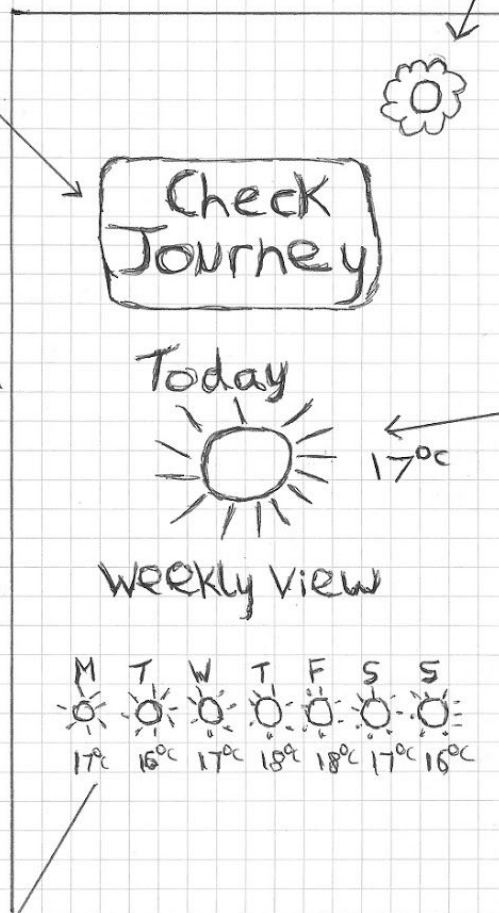 Check
Journey
Today
17°C
Weekly View
M T W T F S S
17°C 16°C 17°C 18°C 18°C 17°C 16°C